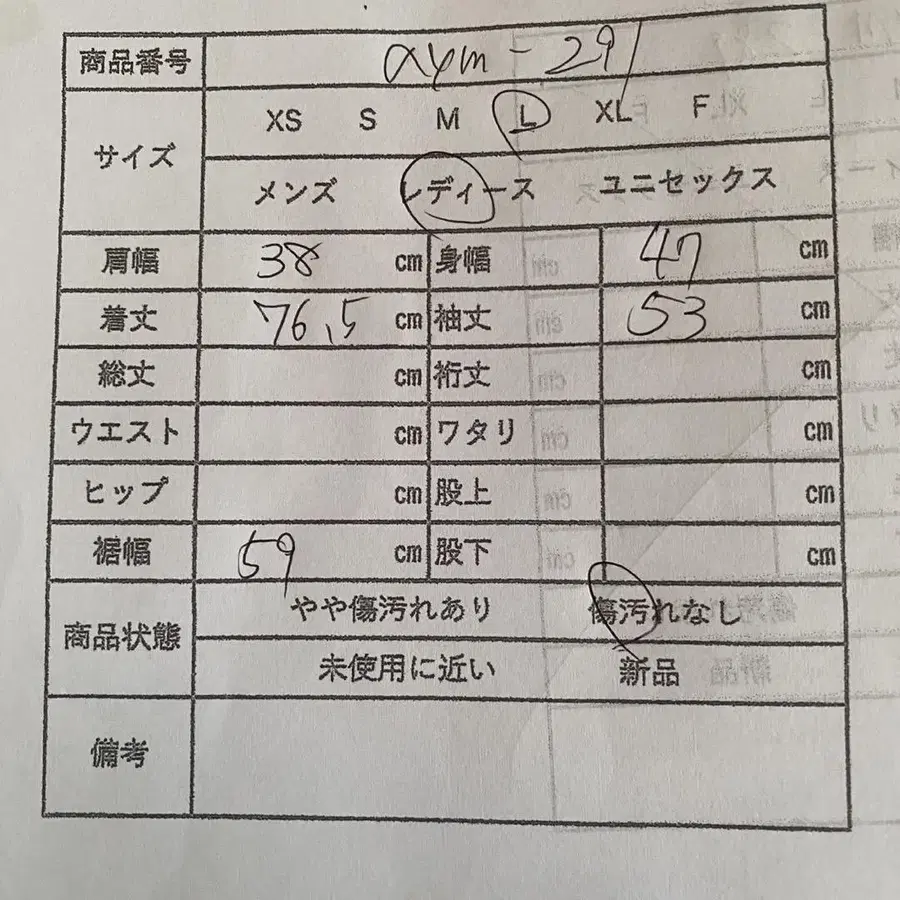 商品番号 aym-291
サイズ XS S M L XL F
メンズ レディース ユニセックス
肩幅 38 cm 身幅 47 cm
着丈 76.5 cm 袖丈 53 cm
総丈 cm 裄丈 cm
ウエスト cm ワタリ cm
ヒップ cm 股上 cm
裾幅 59 cm 股下 cm
商品状態 やや傷汚れあり 傷汚れなし
未使用に近い 新品
備考